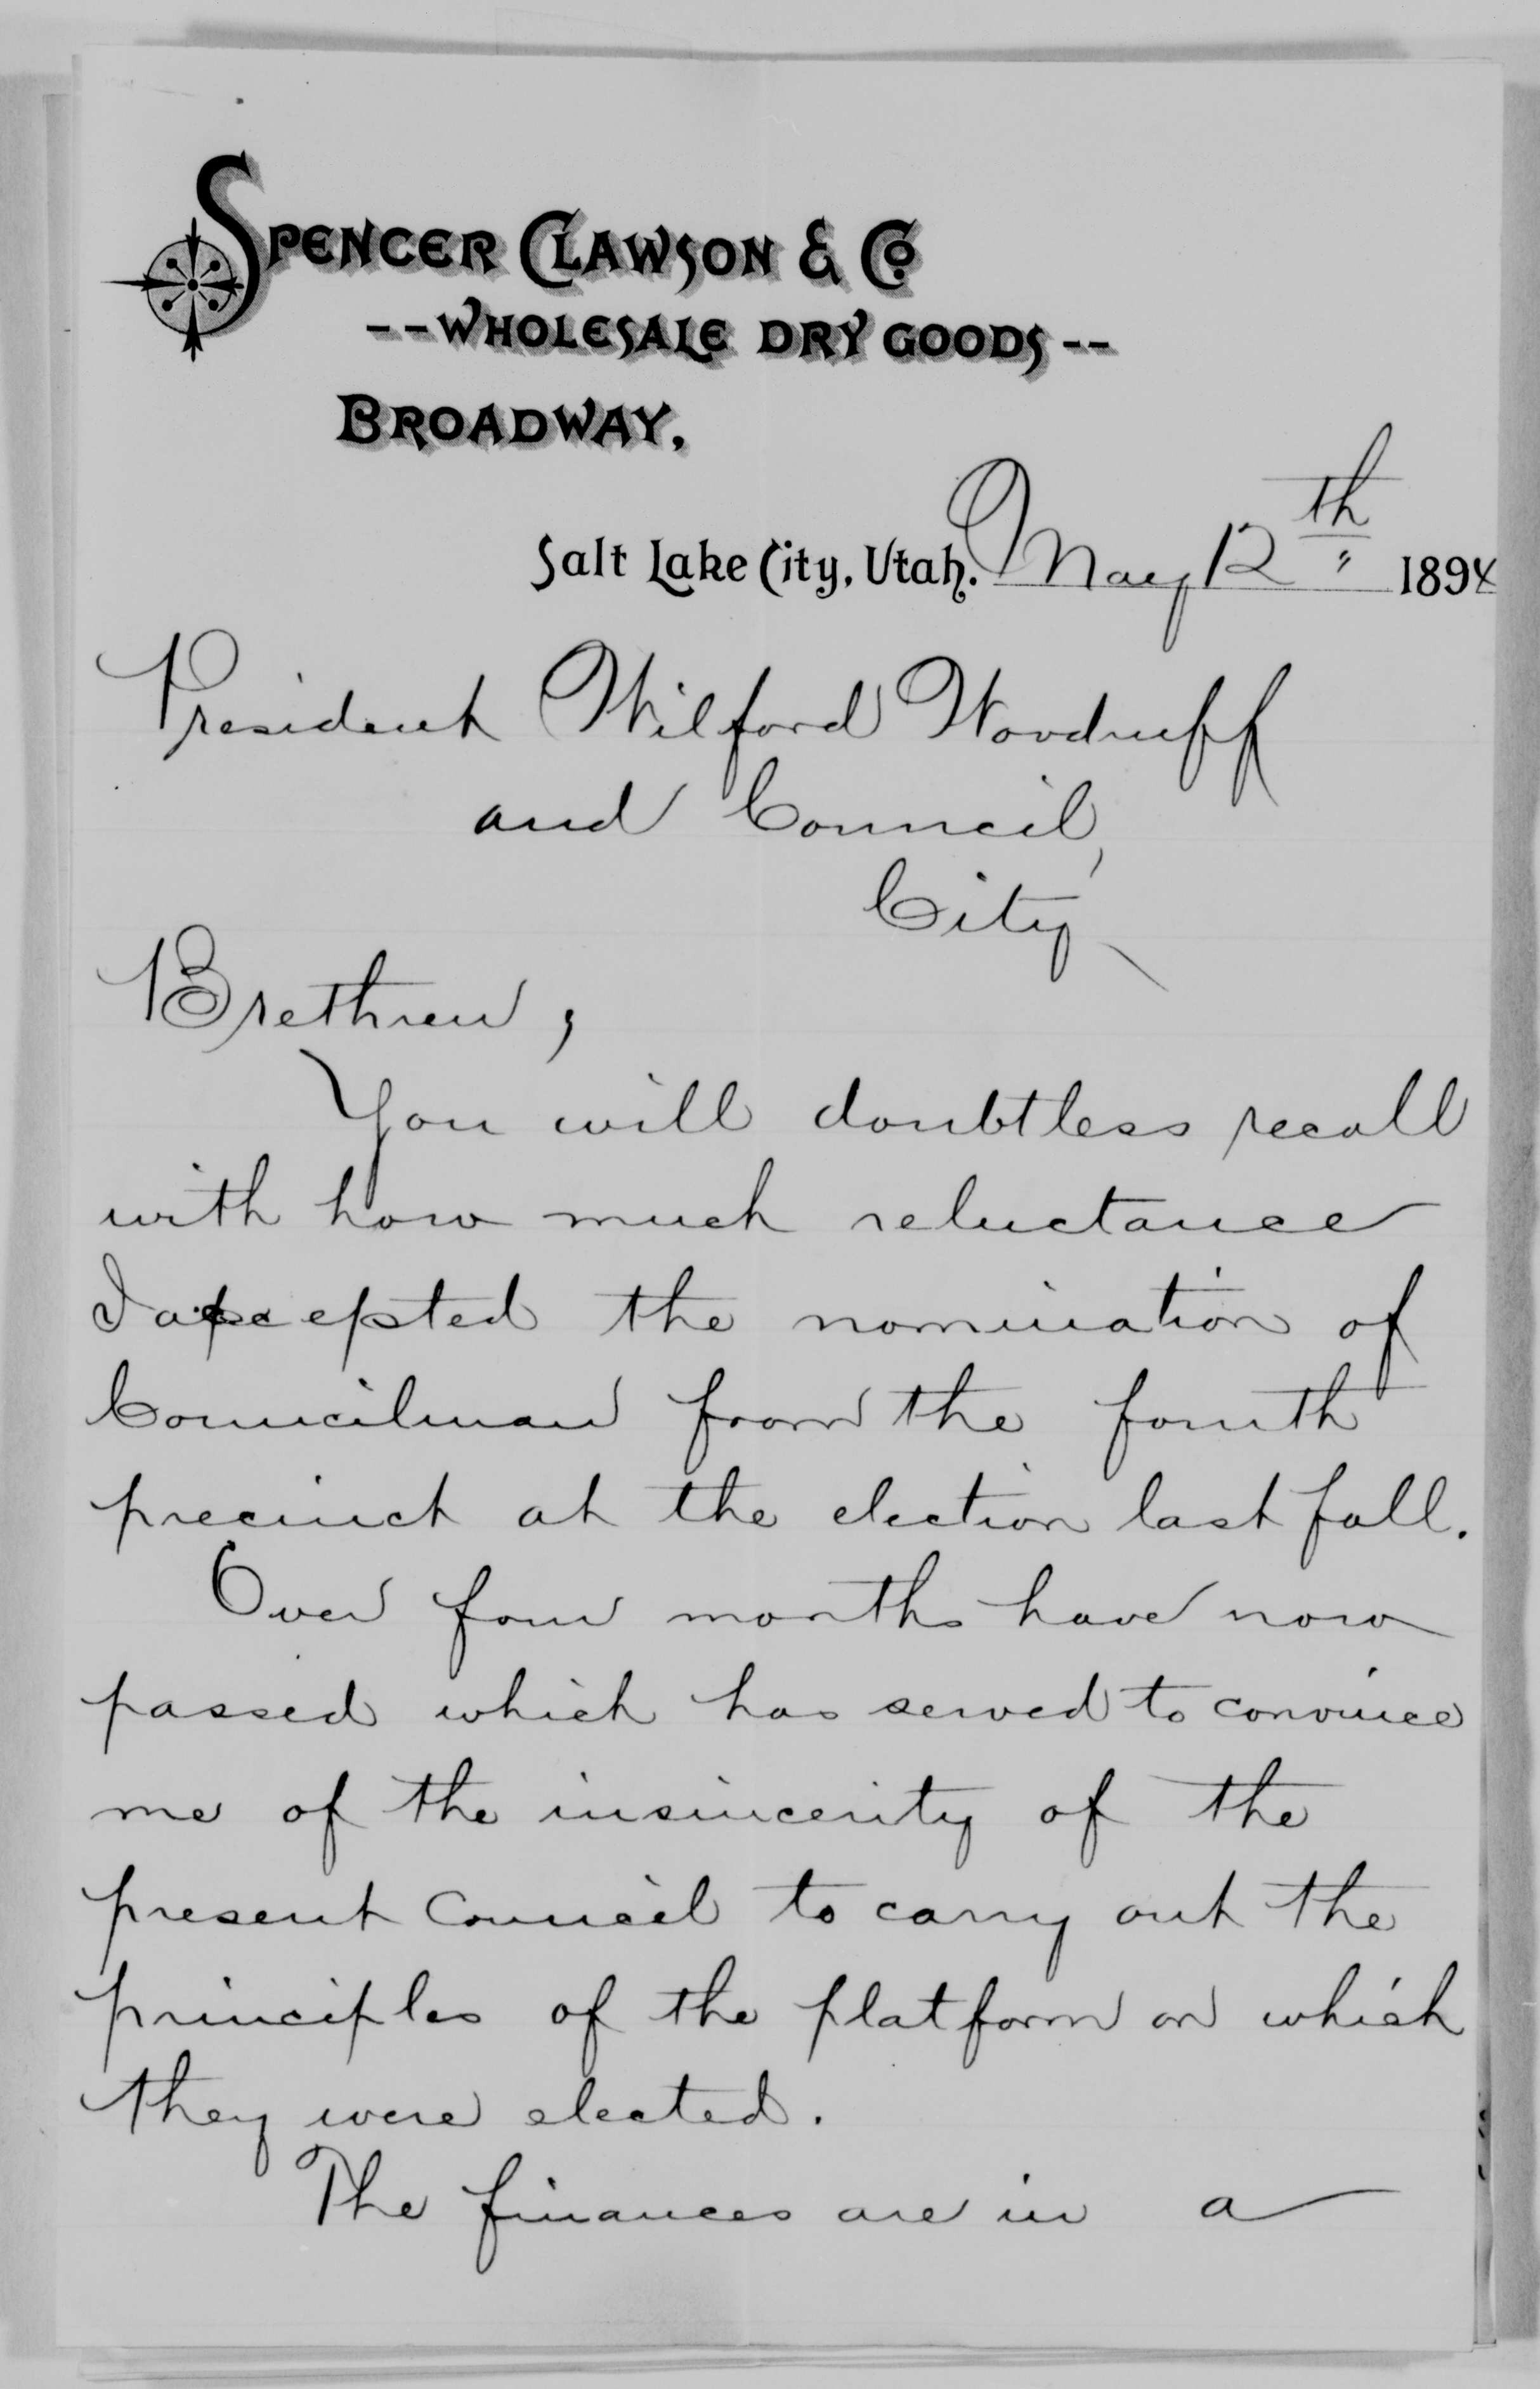 SPENCER CLAWSON & Co
--WHOLESALE DRY GOODS--
BROADWAY.
Salt Lake City, Utah. May 12th 1894
President Wilford Woodruff
and Council,
City
Brethren,
You will doubtless recall
with how much reluctance
I accepted the nomination of
Councilman from the fourth
precinct at the election last fall.
Over four months have now
passed which has served to convince
me of the insincerity of the
present Council to carry out the
principles of the platform on which
they were elected.
The finances are in a